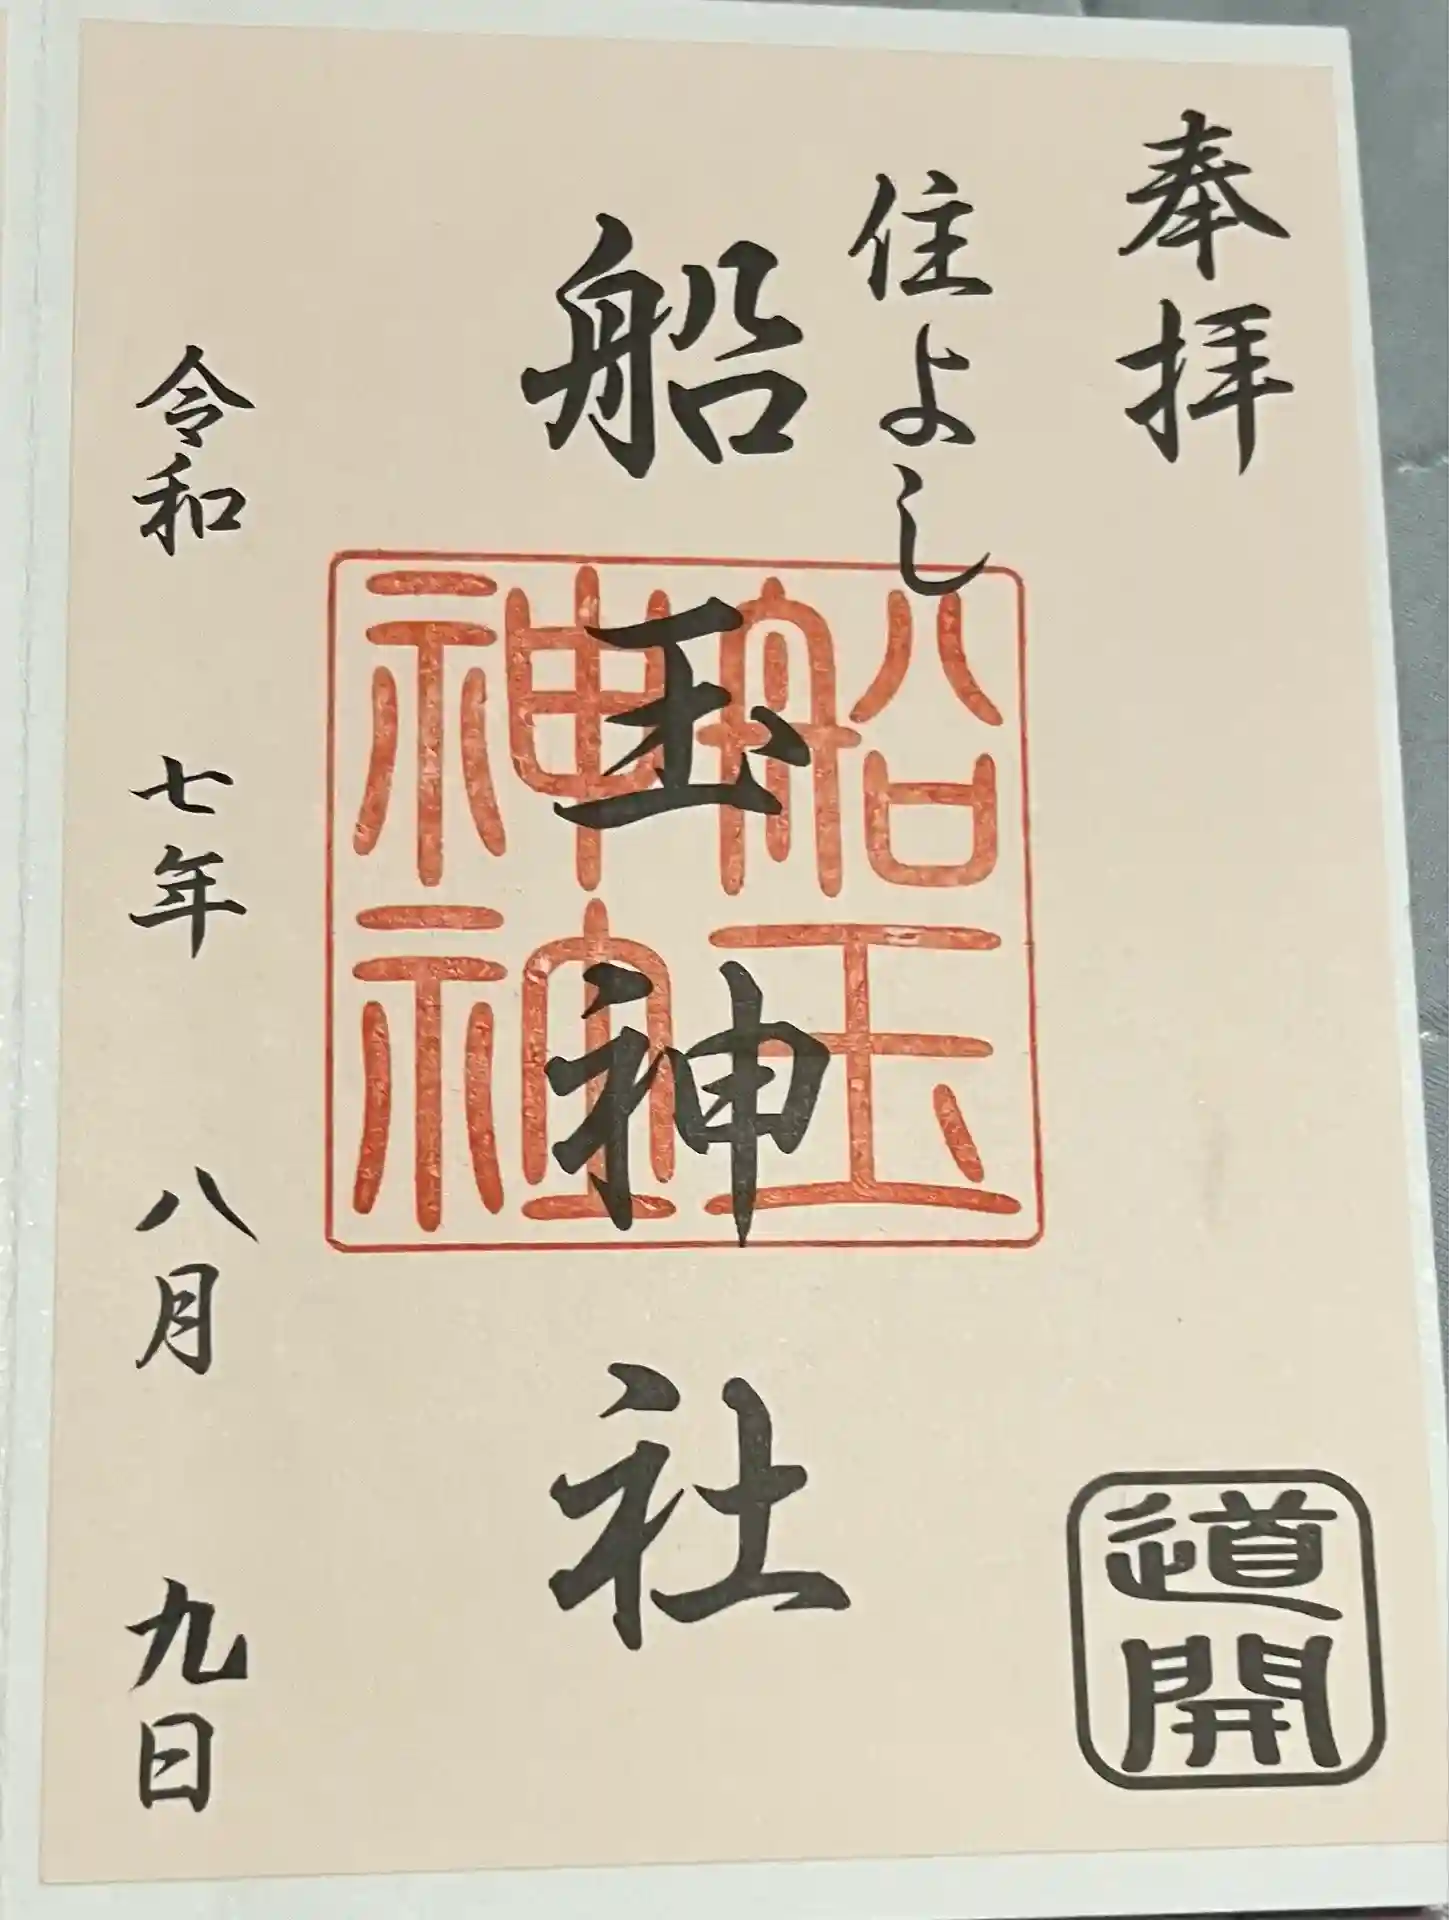 奉拝
道開
住よし
船玉神社
船玉
神社
令和 七年 八月 九日